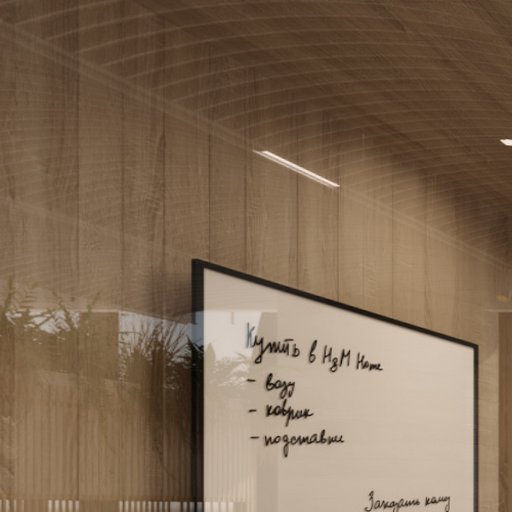 Купить в H&M Home
- вазу
- коврик
- подставки
Заказать